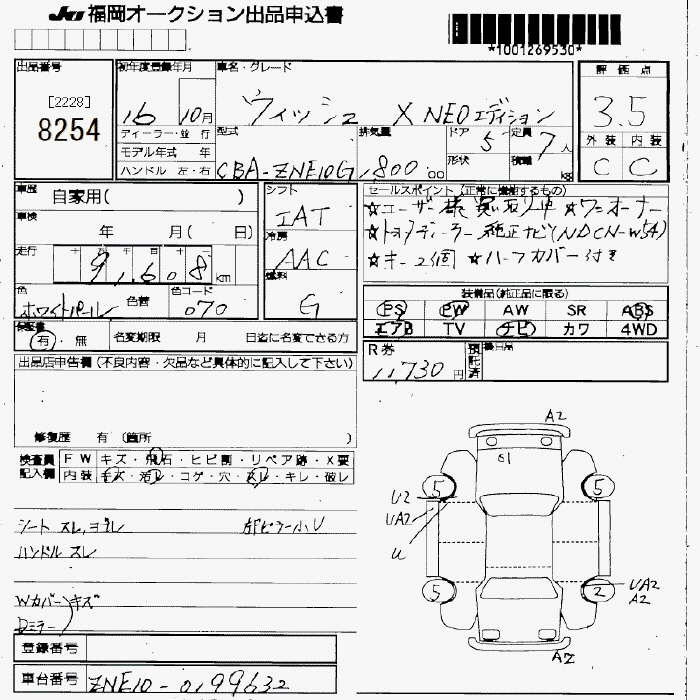 JU 福岡オークション出品申込書
*1001269530*
出品番号
[2228]
8254
初年度登録年月
16 10月
車名・グレード
ウィッシュ X NEOエディション
ディーラー・並 行
モデル年式 年
ハンドル 左・右
型式
CBA-ZNE10G
排気量
1800 cc
ドア 5
形状
定員 7人
積載 kg
評価点
3.5
外装 内装
C C
車歴 自家用( )
車検 年 月( 日)
走行
91,608 km
色
ホワイトパール
色替
色コード
070
シフト
IAT
冷房
AAC
燃料
G
セールスポイント(正常に機能するもの)
☆ユーザー様買い取り車 ☆ワンオーナー
☆トヨタディーラー純正ナビ(NDCN-W54)
☆キー2個 ☆ハーフカバー付き
装備品(純正品に限る)
PS PW AW SR ABS
エアB TV ナビ カワ 4WD
有・無
名変期限 月 日迄に名変できる方
R券
11,730円
預託済
後日品
出品店申告欄(不良内容・欠品など具体的に記入して下さい)
修復歴 有(箇所 )
検査員記入欄
FW キズ・飛石・ヒビ割・リペア跡・X要
内装 キズ・汚レ・コゲ・穴・スレ・キレ・破レ
シート スレ,ヨゴレ
ハンドル スレ
Wカバー キズ
Dミラー
A2
G1
5
5
U2
UA2
U
5
2
UA2
A2
A2
登録番号
車台番号
ZNE10-0199632